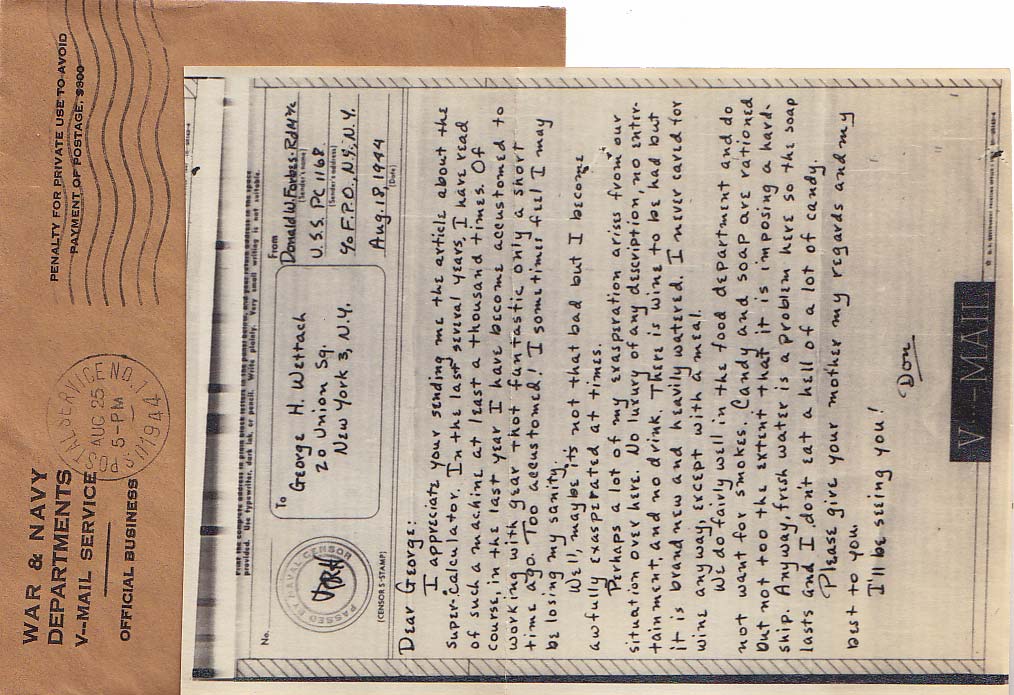 WAR & NAVY
DEPARTMENTS
V--MAIL SERVICE
OFFICIAL BUSINESS
PENALTY FOR PRIVATE USE TO AVOID
PAYMENT OF POSTAGE, $300
U.S. POSTAL SERVICE NO. 1
AUG 25
5-PM
1944
Print the complete address in plain block letters in the panel below, and your return address in the space
provided. Use typewriter, dark ink, or pencil. Write plainly. Very small writing is not suitable.
No.
PASSED BY NAVAL CENSOR
(CENSOR'S STAMP)
To
George H. Wettach
20 Union Sq.
New York 3, N.Y.
From
Donald W. Forbes-RdM 3/c
(Sender's name)
U.S.S. PC 1168
(Sender's address)
c/o F.P.O., N.Y., N.Y.
Aug. 18, 1944
(Date)
Dear George:
I appreciate your sending me the article about the
super-calculator. In the last several years, I have read
of such a machine at least a thousand times. Of
course, in the last year I have become accustomed to
working with gear thot funtastic only a short
time ago. Too accustomed! I sometimes feel I may
be losing my sanity.
Well, maybe its not that bad but I become
awfully exasperated at times.
Perhaps a lot of my exasperation arises from our
situation over here. No luxury of any description, no enter-
tainment, and no drink. There is wine to be had but
it is brand new and heavily watered. I never cared for
wine anyway, except with a meal.
We do fairly well in the food department and do
not want for smokes. Candy and soap are rationed
but not too the extent that it is imposing a hard-
ship. Anyway, fresh water is a problem here so the soap
lasts and I dont eat a hell of a lot of candy.
Please give your mother my regards and my
best to you.
I'll be seeing you!
Don
V--MAIL